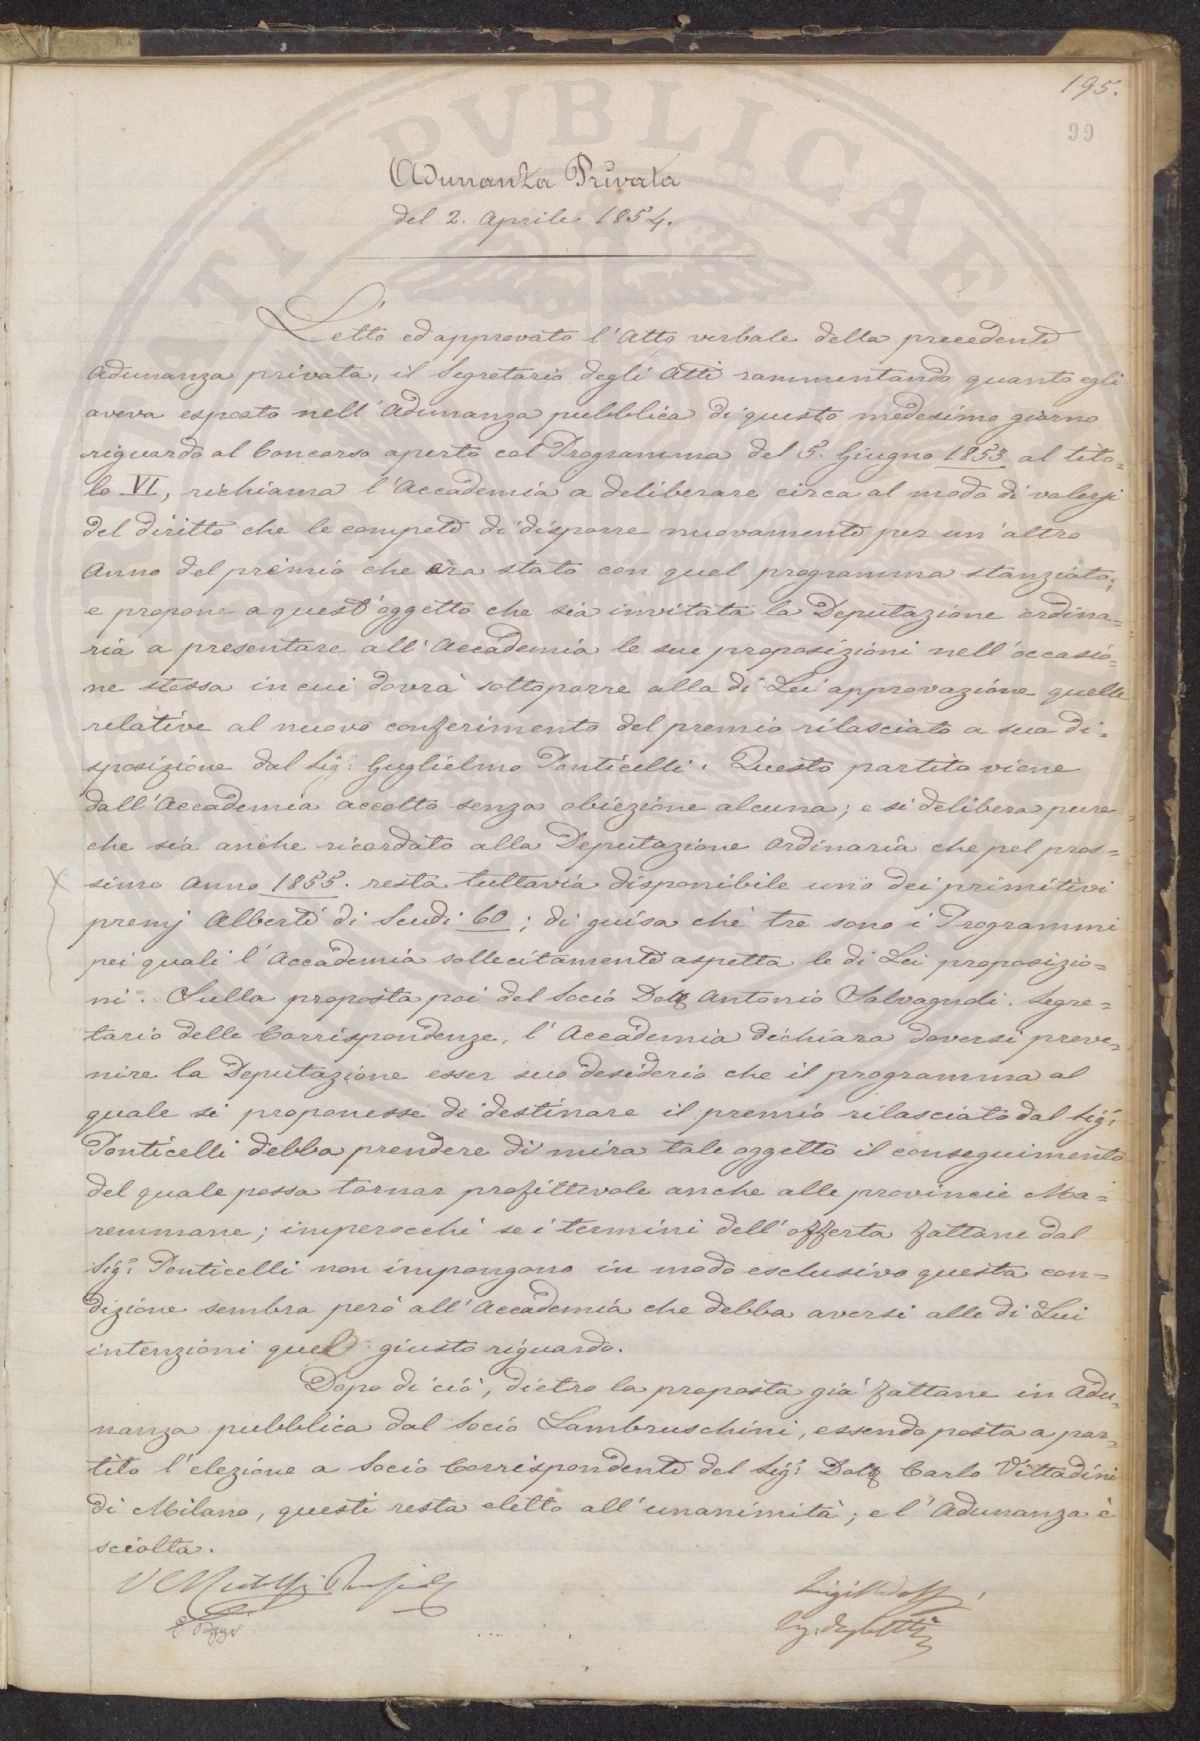 195.
99
Adunanza Privata
del 2. Aprile 1854.
Letto ed approvato l'Atto verbale della precedente
Adunanza privata, il Segretario degli Atti rammentando quanto egli
aveva esposto nell'Adunanza pubblica di questo medesimo giorno
riguardo al Concorso aperto col Programma del 5. Giugno 1853 al tito-
lo VI, richiama l'Accademia a deliberare circa al modo di valersi
del diritto che le compete di disporre nuovamente per un'altro
Anno del premio che era stato con quel programma stanziato;
e propone a quest'oggetto che sia invitata la Deputazione ordina-
ria a presentare all'Accademia le sue proposizioni nell'occasio-
ne stessa in cui dovrà sottoporre alla di Lei approvazione quelle
relative al nuovo conferimento del premio rilasciato a sua di-
sposizione dal Sig: Guglielmo Ponticelli. Questo partito viene
dall'Accademia accolto senza obiezione alcuna; e si delibera pure
che sia anche ricordato alla Deputazione Ordinaria che pel pros-
simo Anno 1855. resta tuttavia disponibile uno dei primitivi
premj Alberti di Scudi 60; di guisa che tre sono i Programmi
pei quali l'Accademia sollecitamente aspetta le di Lei proposizio-
ni. Sulla proposta poi del Socio Dott Antonio Salvagnoli. Segre-
tario delle Corrispondenze, l'Accademia dichiara doversi preve-
nire la Deputazione esser suo desiderio che il programma al
quale si proponesse di destinare il premio rilasciato dal Sig:
Ponticelli debba prendere di mira tale oggetto il conseguimento
del quale possa tornar profittevole anche alle provincie Ma-
remmane; imperocchè se i termini dell'offerta fattane dal
Sig: Ponticelli non impongono in modo esclusivo questa con-
dizione sembra però all'Accademia che debba aversi alle di Lui
intenzioni quel giusto riguardo.
Dopo di ciò, dietro la proposta già fattane in Adu-
nanza pubblica dal Socio Lambruschini, essendo posta a par-
tito l'elezione a Socio Corrispondente del Sig: Dott Carlo Vittadini
di Milano, questi resta eletto all'unanimità; e l'Adunanza è
sciolta.